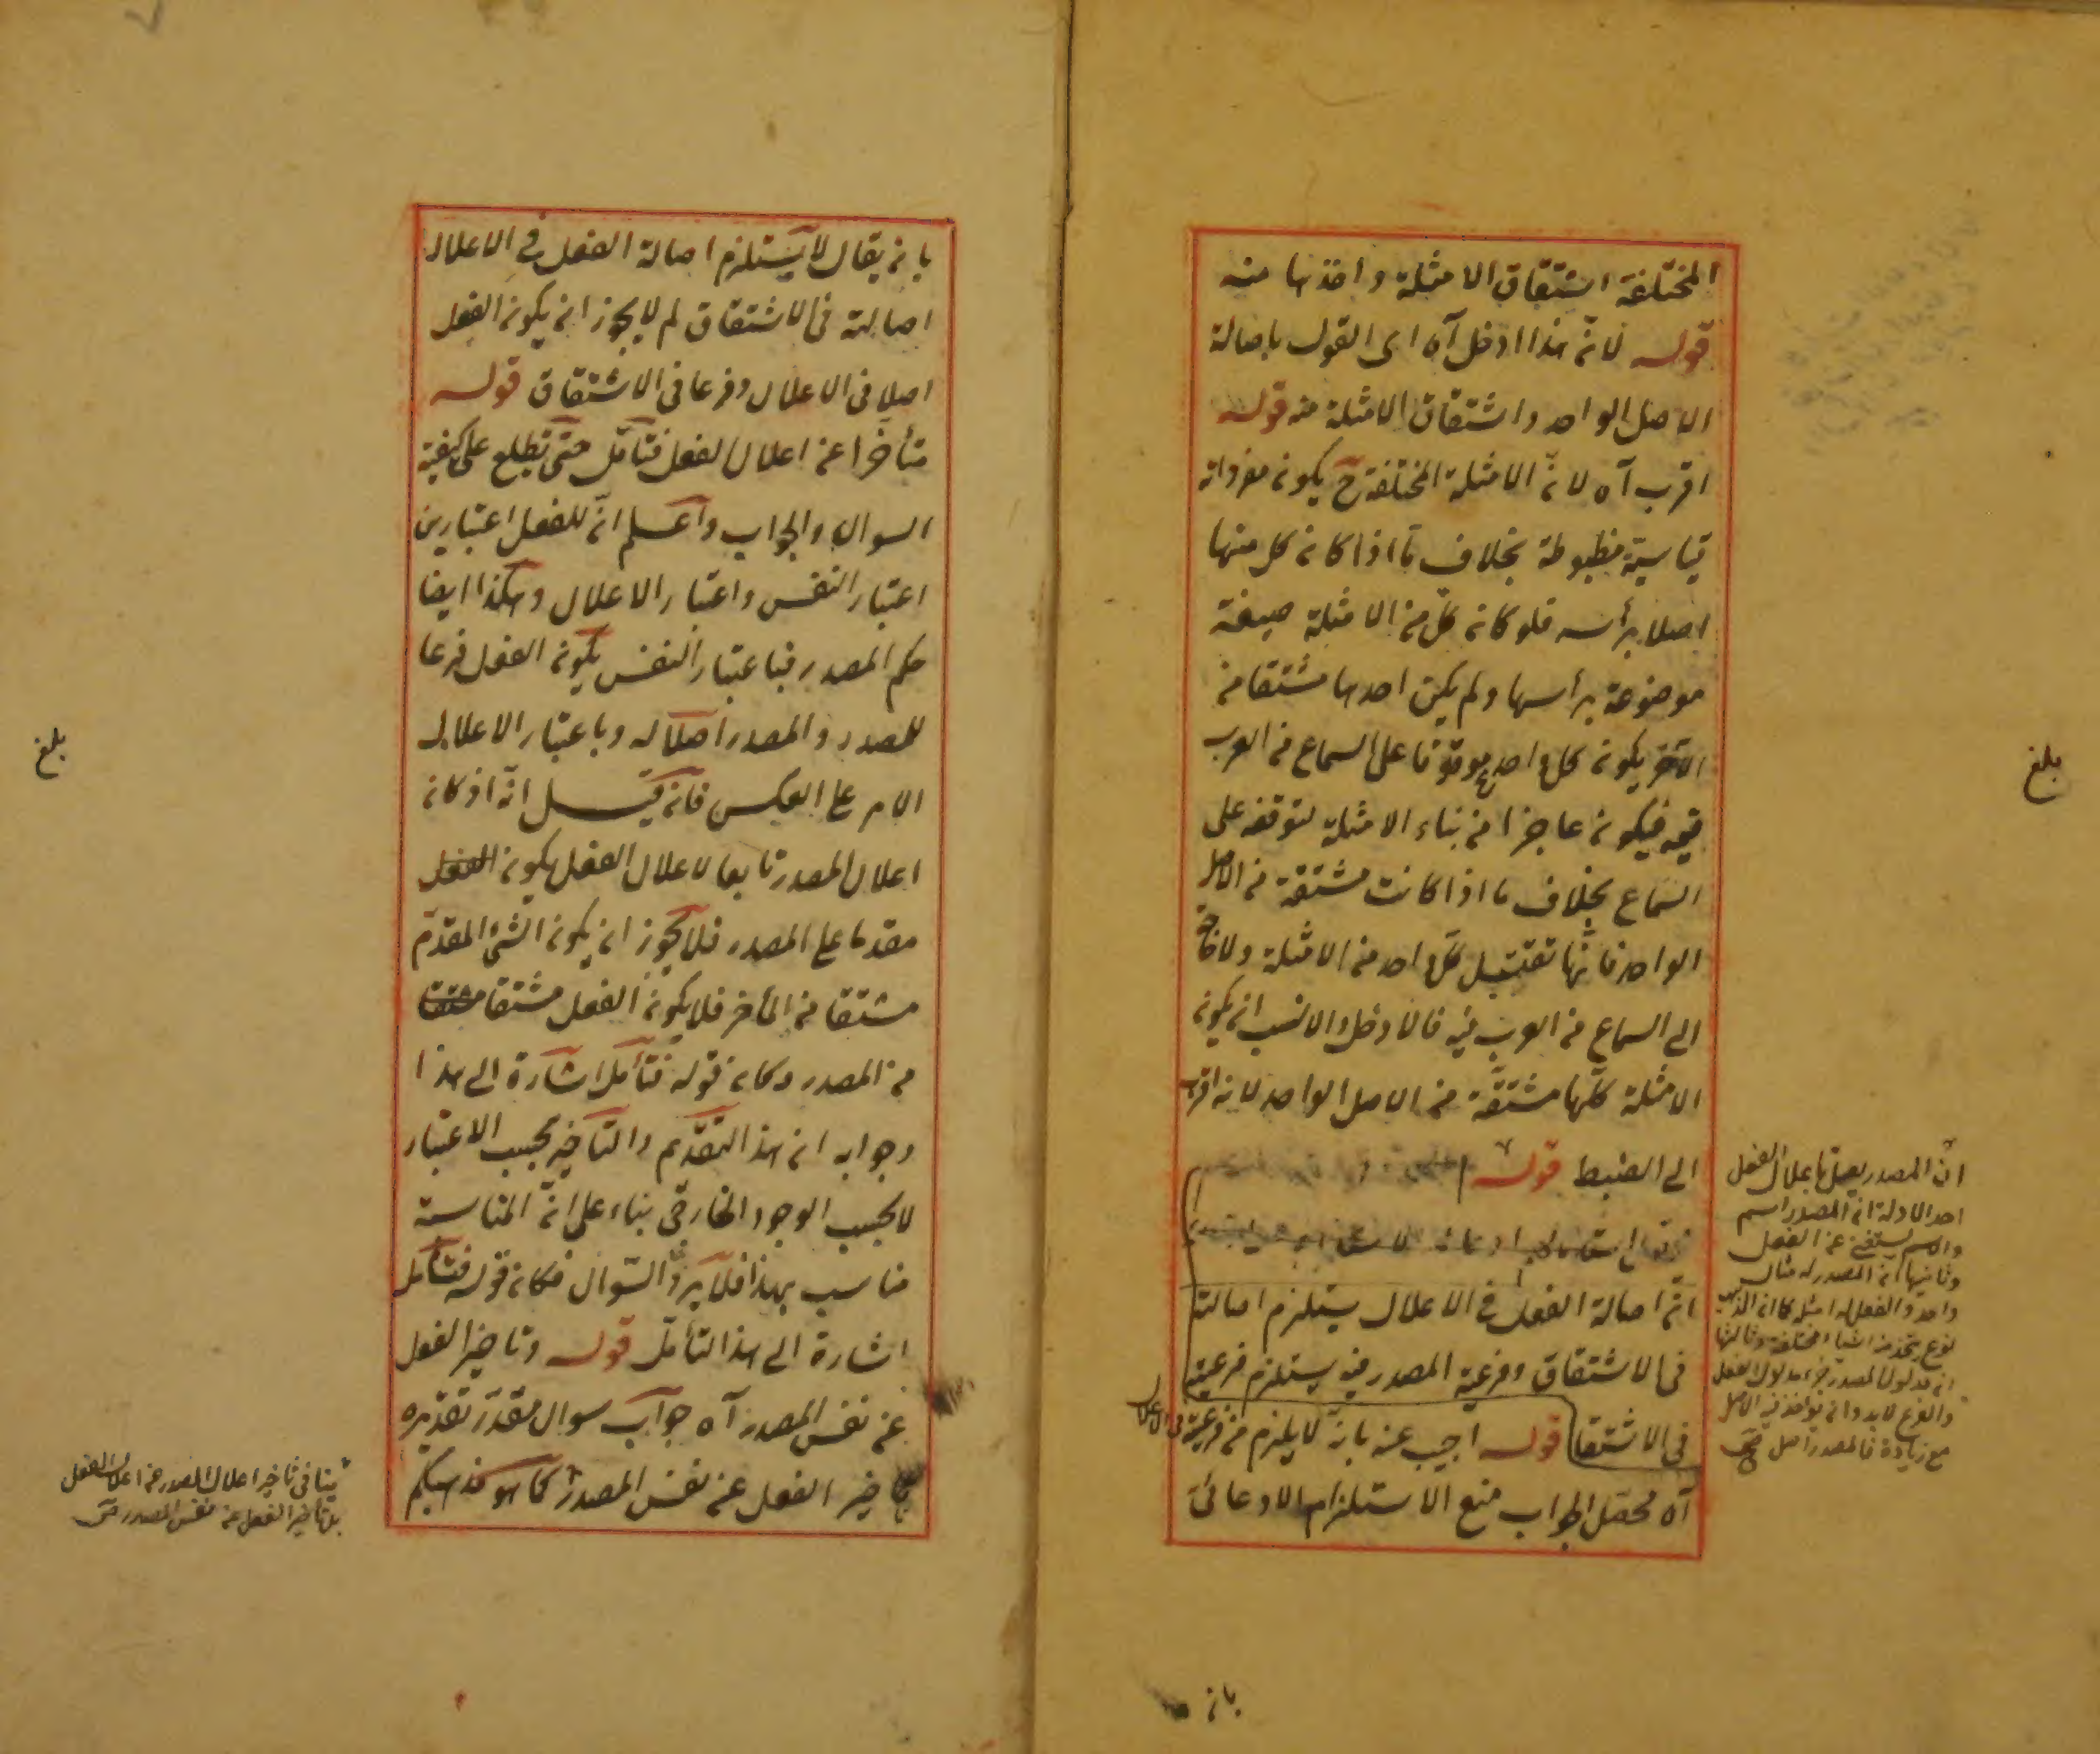 المختلفة اشتقاق الامثلة واخذها منه
قوله لانّ هذا ادخل آه اى القول باصالة
الاصل الواحد واشتقاق الامثلة منه قوله
اقرب آه لانّ الامثلة المختلفة ح يكون مفرداته
قياسية مظبوطة بخلاف ما اذا كان كل منها
اصلا برأسه فلو كان كلّ من الامثلة صيغة
موضوعة برأسها ولم يكن احدها مشتقا من
الآخر يكون كل واحد موقوفا على السماع من العرب
فيكون عاجزا من بناء الامثلة لتوقفه على
السماع بخلاف ما اذا كانت مشتقة من الاصل
الواحد فانّها كلّ واحد من الامثلة ولا
الى السماع من العرب فيه فالادخل والانسب ان يكون
الامثلة كلّها مشتقّة من الاصل الواحد لانه اقرب
الى الضبط قوله
انّ اصالة الفعل فى الاعلال يستلزم اصالته
فى الاشتقاق وفرعية المصدر فيه يستلزم فرعيته
فى الاشتقا قوله اجيب عنه بانّه لا يلزم من فرعيته فى الاعلال
آه محصّل الجواب منع الاستلزام الادعائى
انّ المصدر يعلّ باعلال الفعل
احد الادلة انّ المصدر اسم
والاسم يستغنى عن الفعل
وثانيها انّ المصدر له مثال
واحد والفعل له امثلة كما ان الذهب
نوع يتخذ منه اشياء مختلفة وثالثها
ان مدلول المصدر جزء مدلول الفعل
والفرع لا بد وان يؤخذ فيه الاصل
مع زيادة فالمصدر اصل صح
بلغ
بان
بان يقال لا يستلزم اصالة الفعل فى الاعلال
اصالته فى الاشتقاق لم لا يجوز ان يكون الفعل
اصلا فى الاعلال وفرعا فى الاشتقاق قوله
متأخرا عن اعلال الفعل فتأمّل حتّى تطلع على كيفية
السوال والجواب واعلم انّ للفعل اعتبارين
اعتبار النفس واعتبار الاعلال وهكذا ايضا
حكم المصدر فباعتبار النفس يكون الفعل فرعا
للمصدر والمصدر اصلا له وباعتبار الاعلال
الامر على العكس فان قيل انّه اذ كان
اعلال المصدر تابعا لاعلال الفعل يكون الفعل
مقدما على المصدر فلا يجوز ان يكون الشئ المقدّم
مشتقا من المأخر فلا يكون الفعل مشتقا مشتقا
من المصدر وكان قوله فتأمل اشارة الى هذا
وجوابه ان هذا التقدّيم والتأخير بحسب الاعتبار
لا بحسب الوجود الخارجى بناء على انّ المناسبة
مناسب بهذا فلا يردّ السّوال فكان قوله فتأمّل
اشارة الى هذا التأمّل قوله وتاخير الفعل
عن نفس المصدر آه جواب سوال مقدّر تقدّيره
تاخير الفعل عن نفس المصدر كما هو مذهبكم
ينافى تاخير اعلال المصدر عن اعلال الفعل
بل تأخير الفعل عن نفس المصدر
بلغ